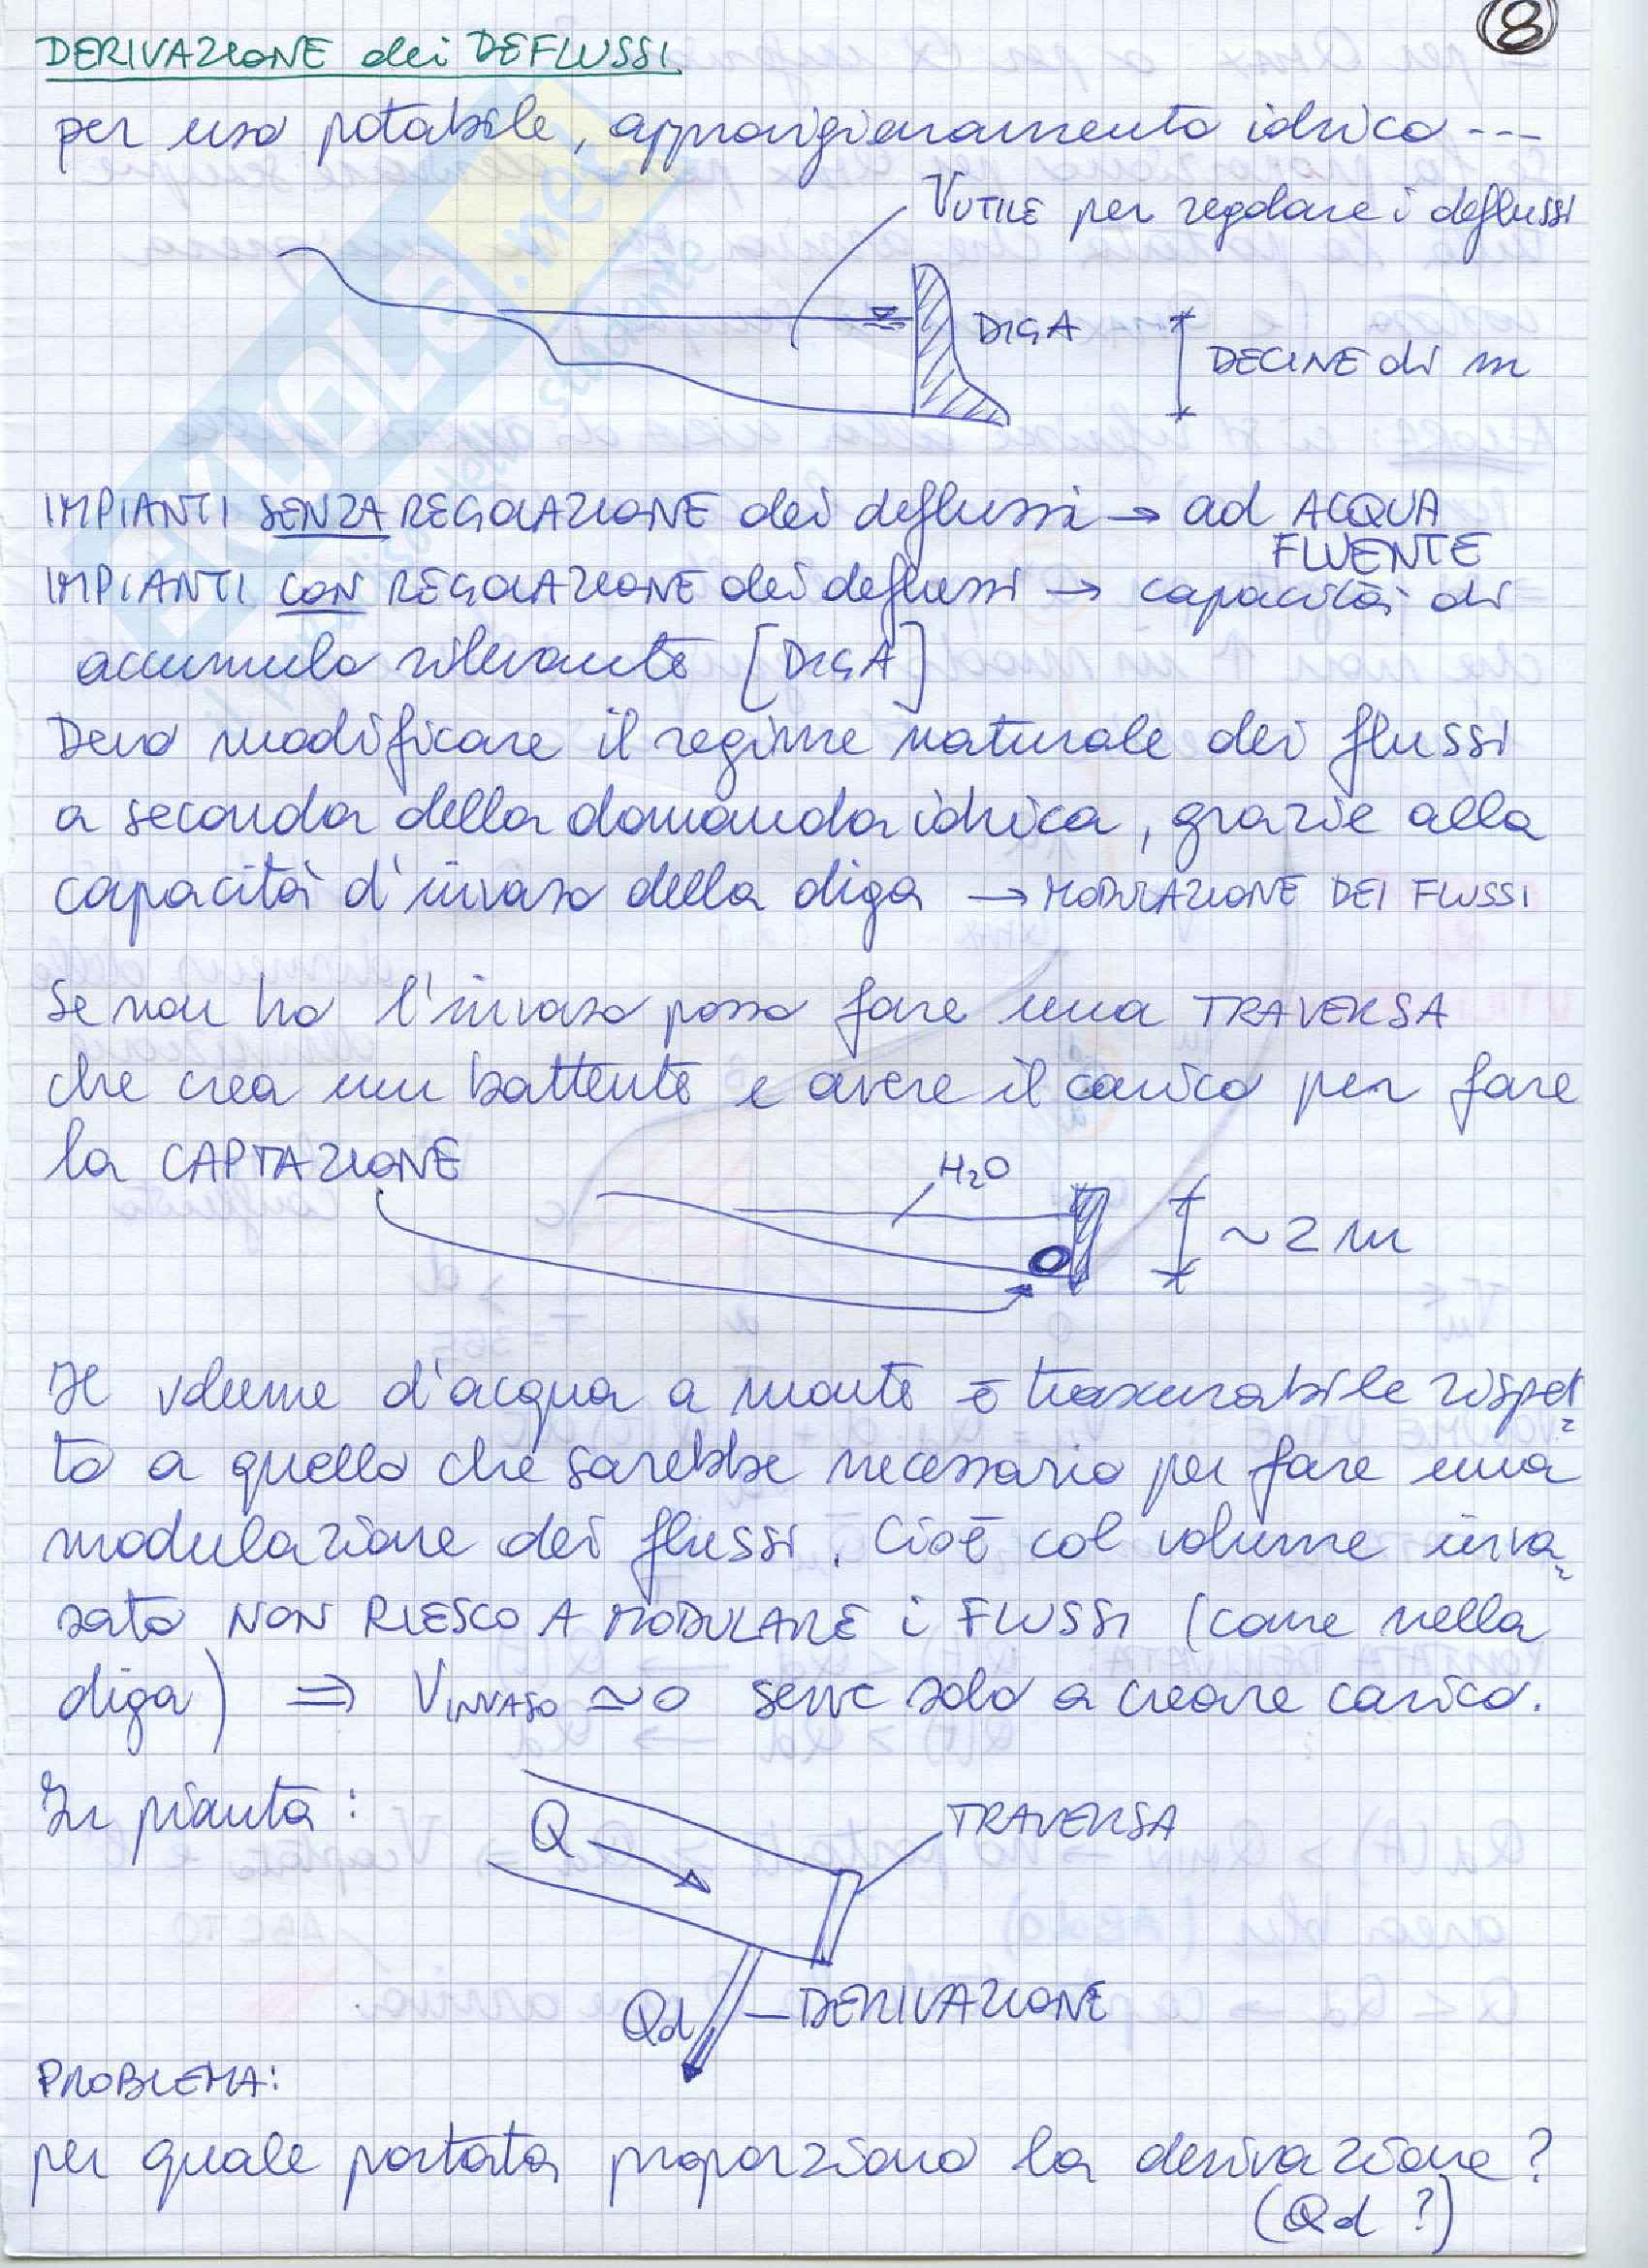 8
DERIVAZIONE dei DEFLUSSI
per uso potabile, approvigionamento idrico ---
VUTILE per regolare i deflussi
DIGA
DECINE di m
IMPIANTI SENZA REGOLAZIONE dei deflussi → ad ACQUA
FLUENTE
IMPIANTI CON REGOLAZIONE dei deflussi → capacità di
accumulo rilevante [DIGA]
Devo modificare il regime naturale dei flussi
a seconda della domanda idrica, grazie alla
capacità d'invaso della diga → MODULAZIONE DEI FLUSSI
Se non ho l'invaso posso fare una TRAVERSA
che crea un battente e avere il carico per fare
la CAPTAZIONE
H2O
~2 m
Il volume d'acqua a monte è trascurabile rispet
to a quello che sarebbe necessario per fare una
modulazione dei flussi. Cioè col volume inva
sato NON RIESCO A MODULARE i FLUSSI (come nella
diga) ⇒ VINVASO ≃ 0 serve solo a creare carico.
In pianta:
Q
TRAVERSA
Qd
DERIVAZIONE
PROBLEMA:
per quale portata proporziono la derivazione?
(Qd ?)